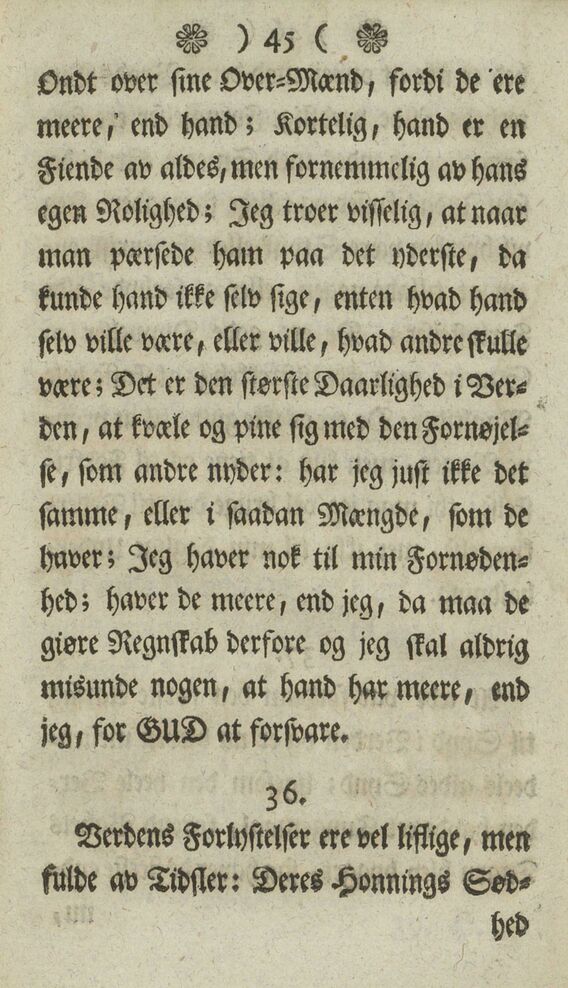 ) 45 (
Ondt over sine Over-Mænd, fordi de ere
meere, end hand; Kortelig, hand er en
Fiende av aldes, men fornemmelig av hans
egen Rolighed; Jeg troer visselig, at naar
man pærsede ham paa det yderste, da
kunde hand ikke selv sige, enten hvad hand
selv ville være, eller ville, hvad andre skulle
være; Det er den største Daarlighed i Ver-
den, at kvæle og pine sig med den Fornøjel-
se, som andre nyder: har jeg just ikke det
samme, eller i saadan Mængde, som de
haver; Jeg haver nok til min Fornøden-
hed; haver de meere, end jeg, da maa de
giøre Regnskab derfore og jeg skal aldrig
misunde nogen, at hand har meere, end
jeg, for GUD at forsvare.
36.
Verdens Forlystelser ere vel liflige, men
fulde av Tidsler: Deres Honnings Sød-
hed